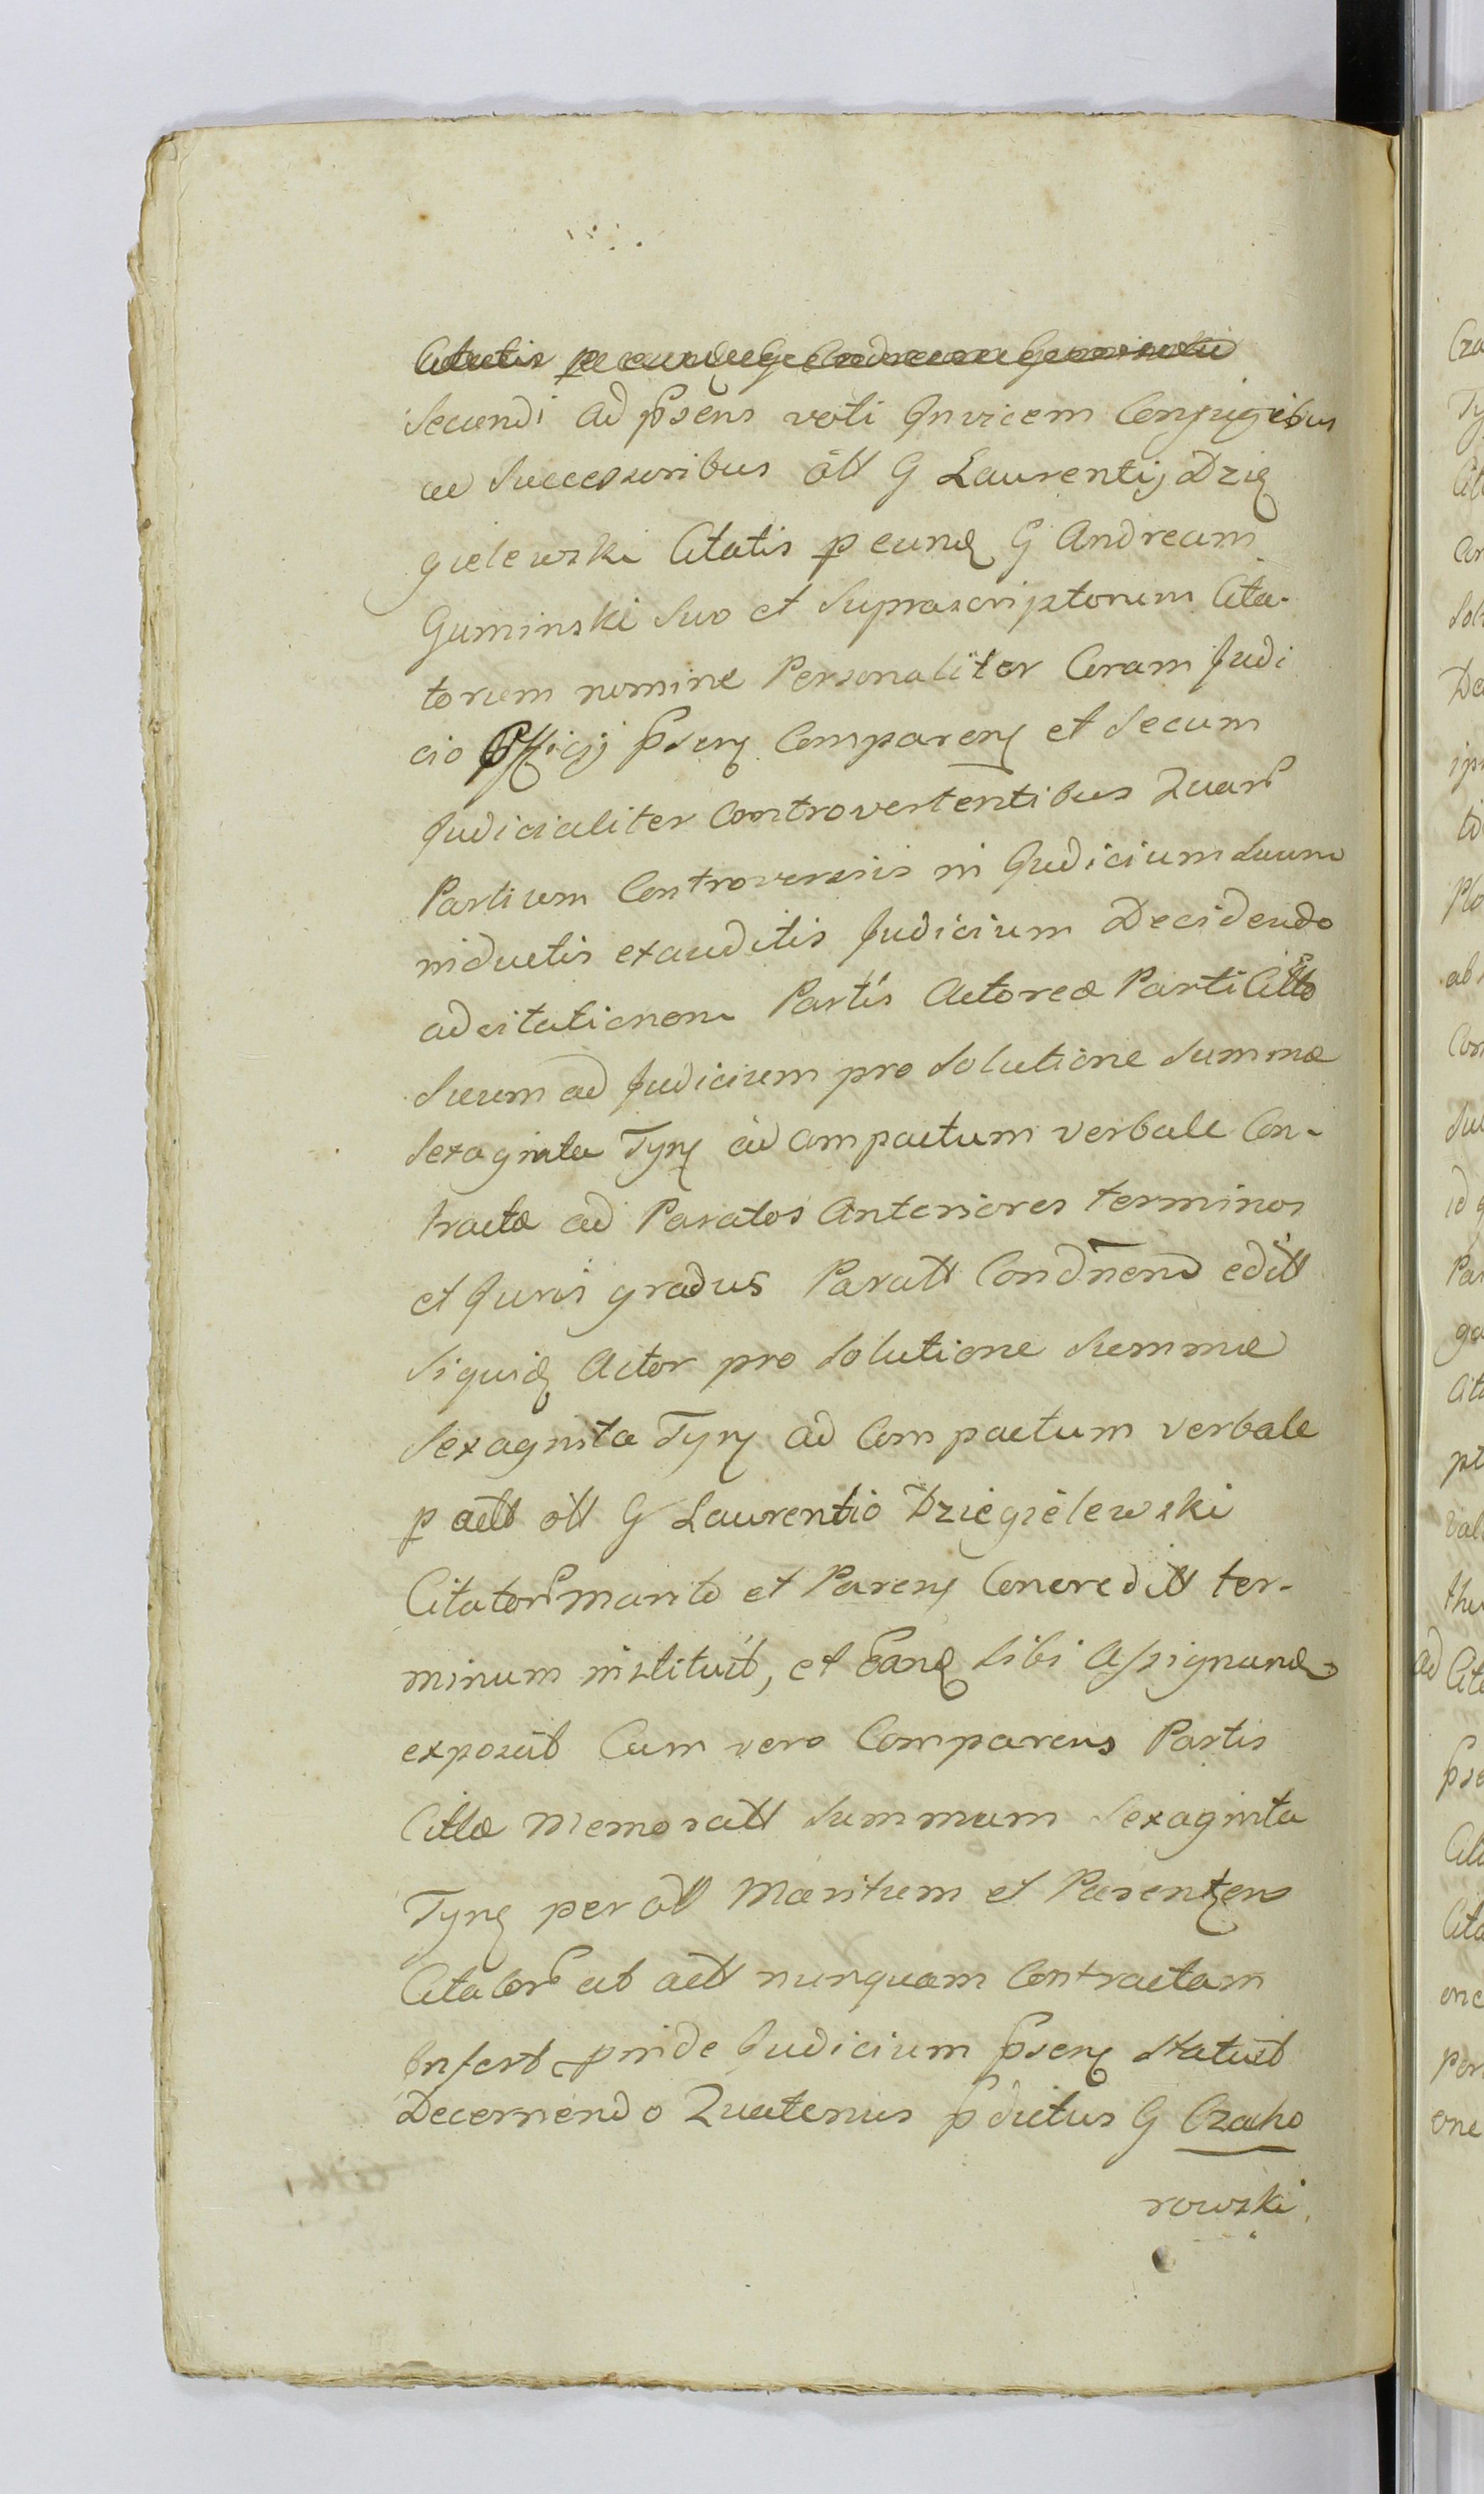 Citatis per eundem G Andream Guminski
Secundi ad psens voti Invicem Conjugibus
ac Successoribus olt G Laurentij Dzię
gielewski Citatis p eundę G Andream
Guminski Suo et Suprascriptorum Cita-
torum nomine Personaliter Coram Judi
cio Officij psenę Comparenę et Secum
Judicialiter Controvertentibus Quarū
Partium Controversiis in Judicium Suum
inductis exauditis Judicium Decidendo
ad citationem Partis Actoreæ Parti Cittæ
Suum ad Judicium pro Solutione Summæ
Sexaginta Tynę ad Compactum verbale Con-
tractæ ad Paratos Anteriores terminos
et Juris gradus Paratt Condnend editt
Siquidę Actor pro Solutione Summæ
Sexaginta Tynę ad Compactum verbale
p actt olt G Laurentio Dzięgielewski
Citatorū Marito et Parenę Concreditt ter-
minum instituit, et Eandę Sibi Assignandę
exposcit Cum vero Comparens Partis
Cittæ Memoratt Summam Sexaginta
Tynę per olt Maritum et Parentem
Citatorū ab actt nunquam Contractam
Infert proinde Judicium psenę Statuit
Decernendo Quatenus pdictus G Czaho
rowski